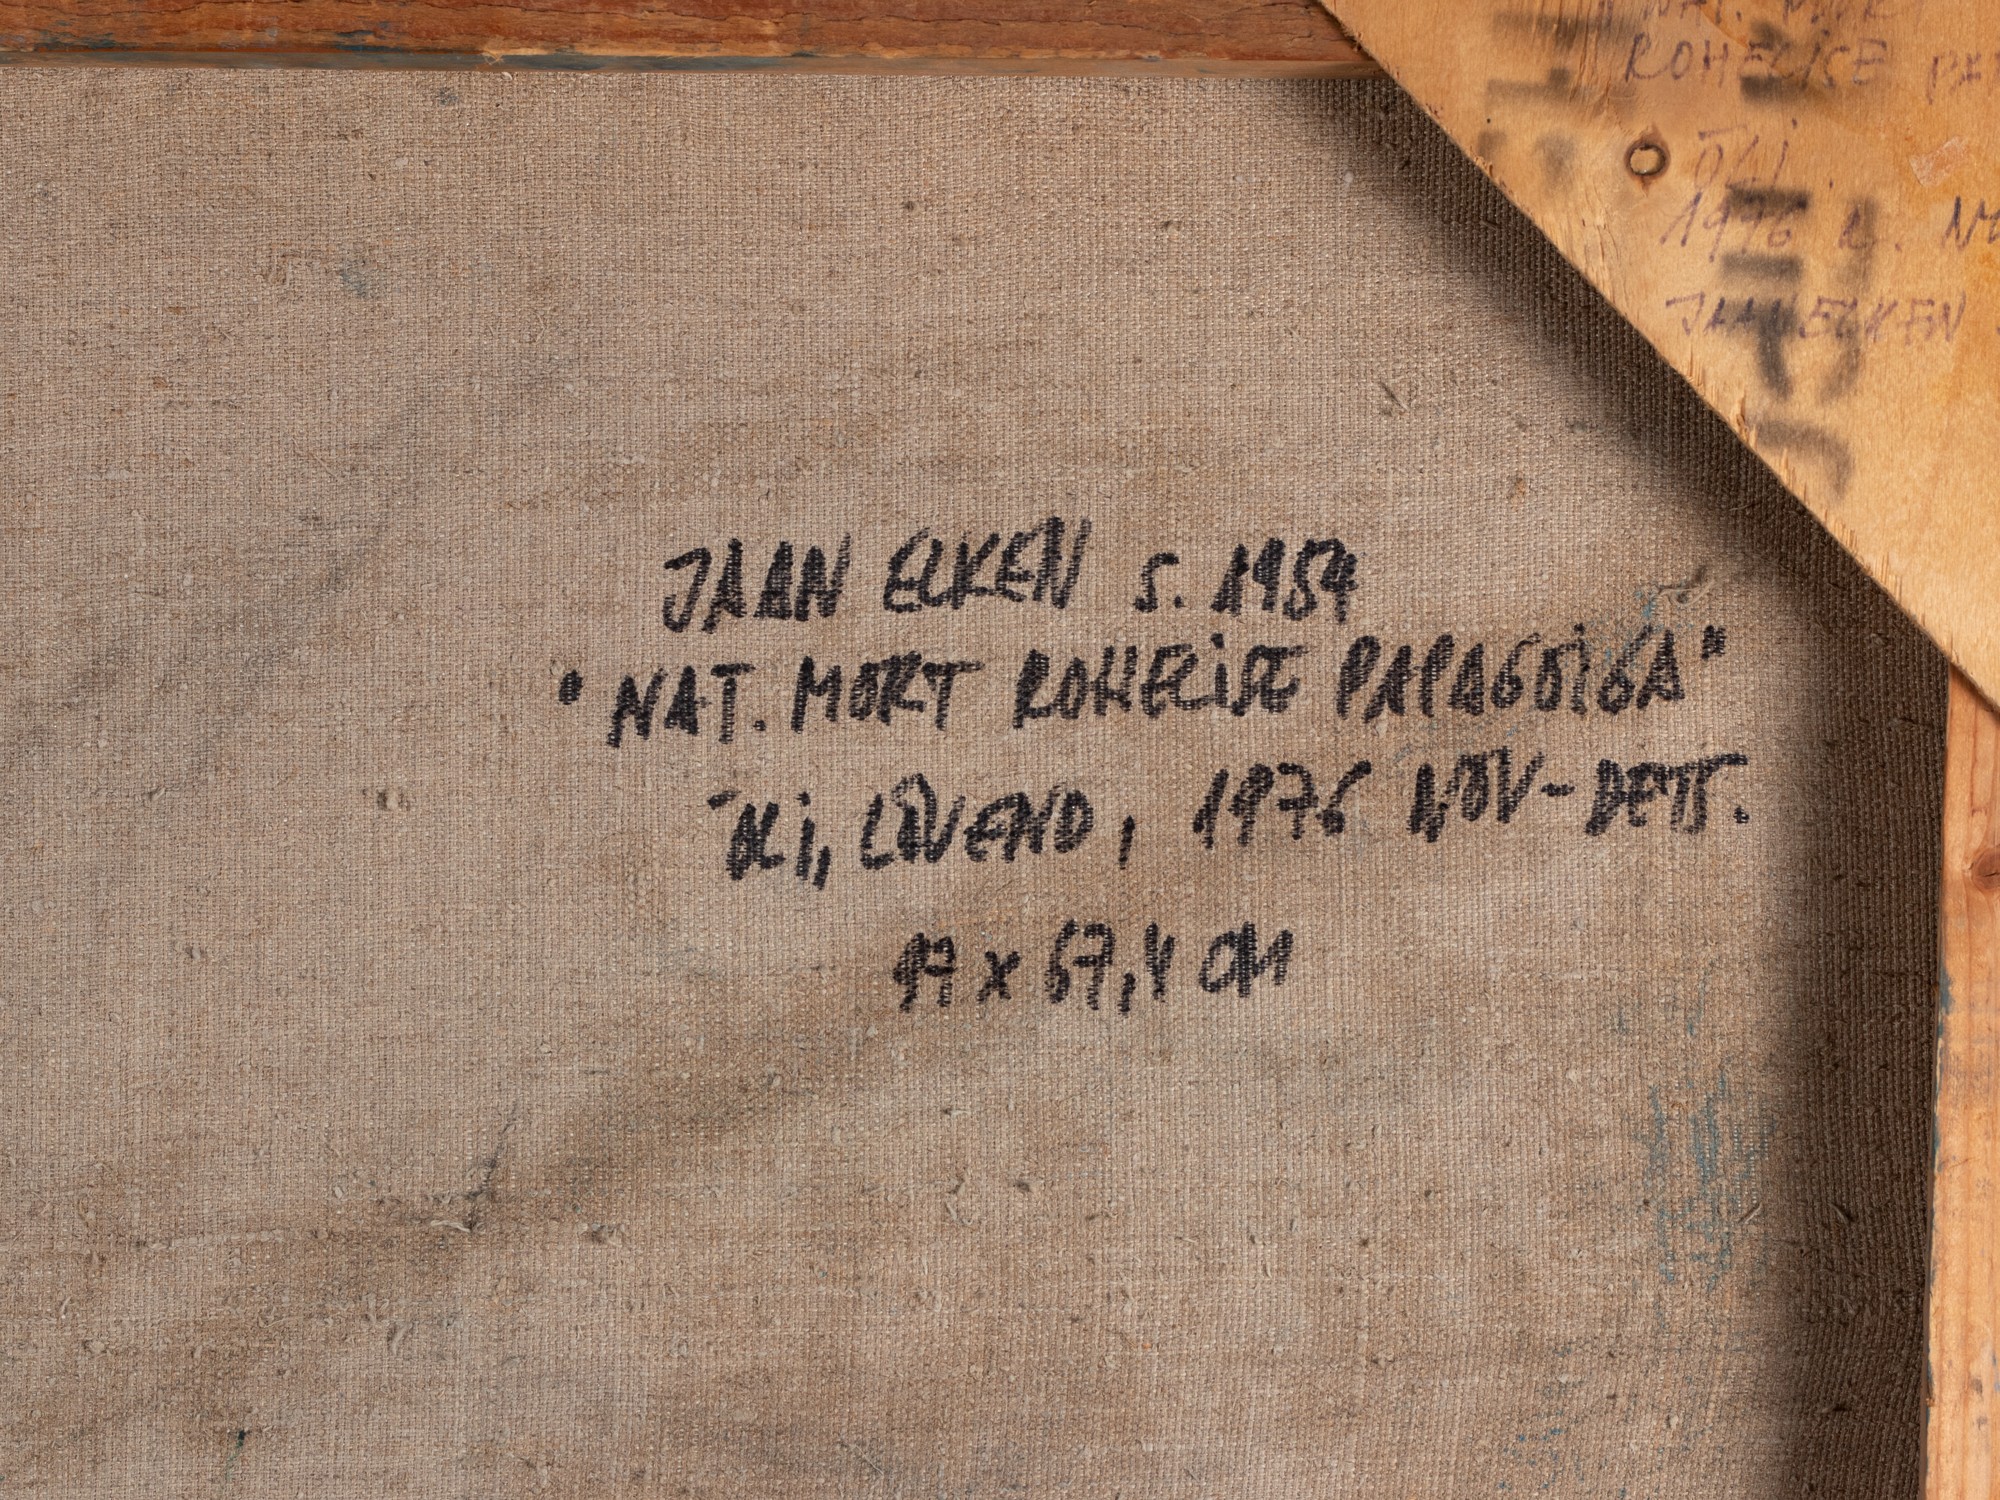 NAT. MORT
ROHELISE
ÕLI.
1976
JAAN ELKEN
JAAN ELKEN s. 1954
"NAT. MORT ROHELISE PAPAGOIGA"
ÕLI, LÕUEND, 1976 NOV-DETS.
97 x 67,4 CM